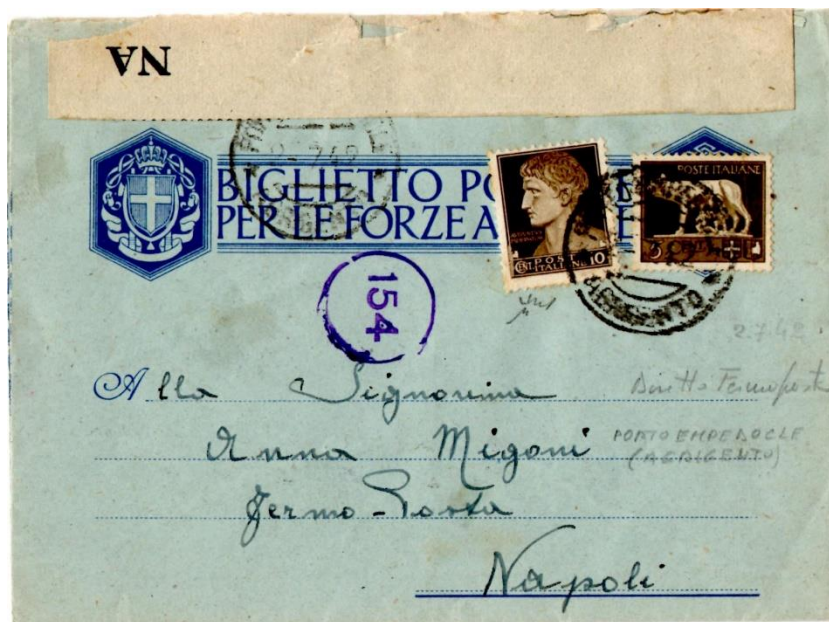 NA
BIGLIETTO PO
PER LE FORZE A
AGRIGENTO
POSTE ITALIANE
5 CENT
CENT. POSTE ITALIANE 10
154
2.7.42
Alla Signorina
Diritto Fermoposta
Anna Migoni
PORTO EMPEDOCLE
(AGRIGENTO)
Fermo-Posta
Napoli